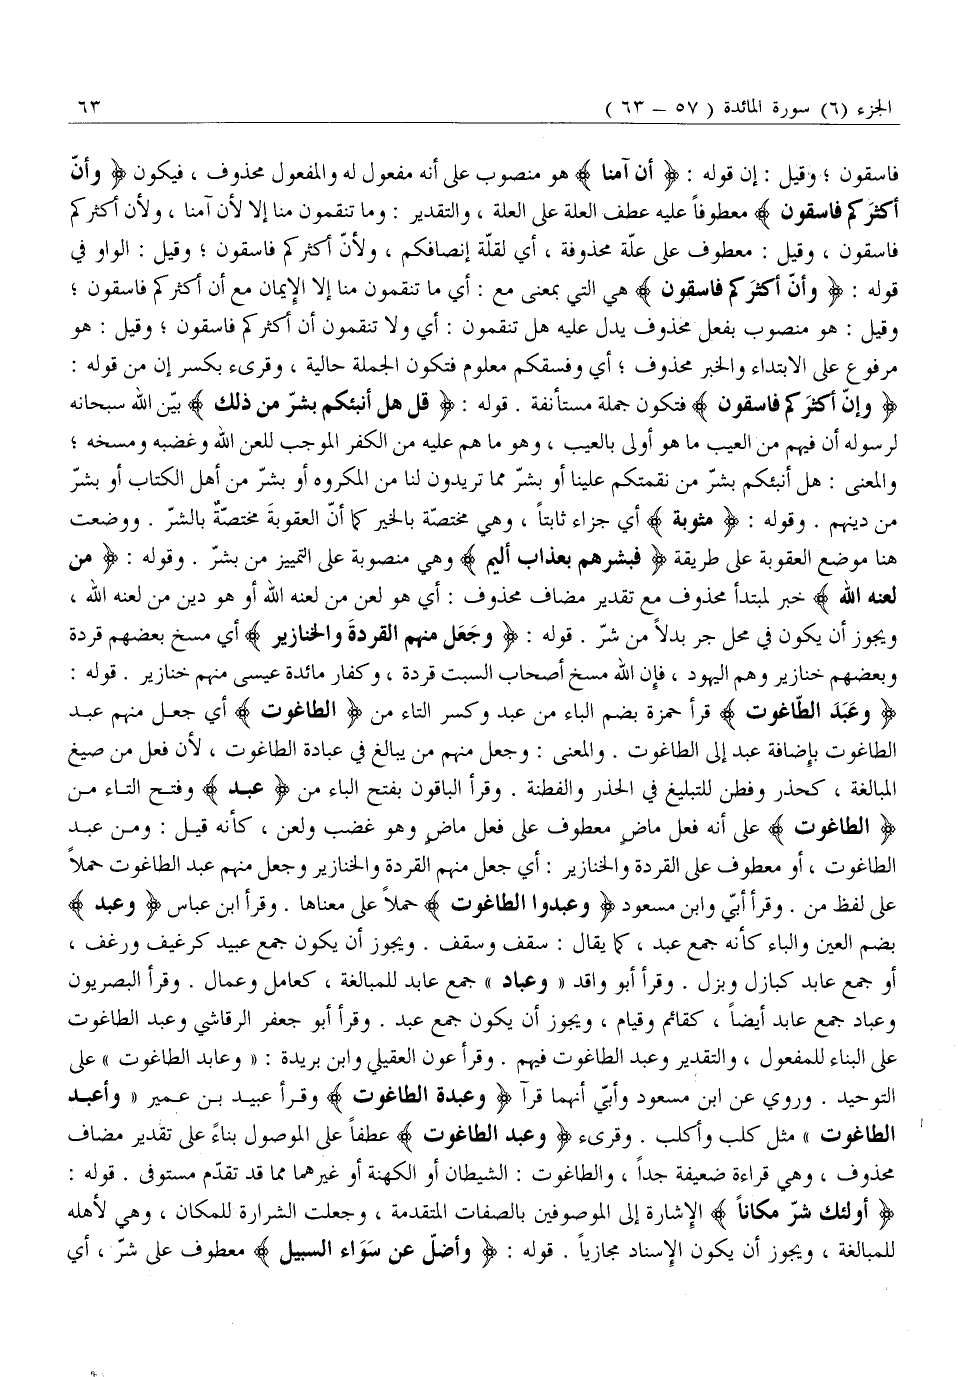 الجزء (٦) سورة المائدة ( ٥٧ – ٦٣ ) ٦٣
فاسقون ؛ وقيل : إن قوله : ﴿ أن آمنا ﴾ هو منصوب على أنه مفعول له والمفعول محذوف ، فيكون ﴿ وأنّ
أكثرَكم فاسقون ﴾ معطوفاً عليه عطف العلة على العلة ، والتقدير : وما تنقمون منا إلا لأن آمنا ، ولأن أكثركم
فاسقون ، وقيل : معطوف على علّة محذوفة ، أي لقلّة إنصافكم ، ولأنّ أكثركم فاسقون ؛ وقيل : الواو في
قوله : ﴿ وأنّ أكثرَكم فاسقون ﴾ هي التي بمعنى مع : أي ما تنقمون منا إلا الإيمان مع أن أكثركم فاسقون ؛
وقيل : هو منصوب بفعل محذوف يدل عليه هل تنقمون : أي ولا تنقمون أن أكثركم فاسقون ؛ وقيل : هو
مرفوع على الابتداء والخبر محذوف ؛ أي وفسقكم معلوم فتكون الجملة حالية ، وقرىء بكسر إن من قوله :
﴿ وإنّ أكثركم فاسقون ﴾ فتكون جملة مستأنفة . قوله : ﴿ قل هل أنبئكم بشرّ من ذلك ﴾ بيّن الله سبحانه
لرسوله أن فيهم من العيب ما هو أولى بالعيب ، وهو ما هم عليه من الكفر الموجب للعن الله وغضبه ومسخه ؛
والمعنى : هل أنبئكم بشرّ من نقمتكم علينا أو بشرّ مما تريدون لنا من المكروه أو بشرّ من أهل الكتاب أو بشرّ
من دينهم . وقوله : ﴿ مثوبة ﴾ أي جزاء ثابتاً ، وهي مختصّة بالخير كما أنّ العقوبةَ مختصّةٌ بالشرّ . ووضعت
هنا موضع العقوبة على طريقة ﴿ فبشرهم بعذاب أليم ﴾ وهي منصوبة على التمييز من بشرّ . وقوله : ﴿ من
لعنه الله ﴾ خبر لمبتدأ محذوف مع تقدير مضاف محذوف : أي هو لعن من لعنه الله أو هو دين من لعنه الله ،
ويجوز أن يكون في محل جر بدلاً من شرّ . قوله : ﴿ وجَعَل منهم القردةَ والخنازير ﴾ أي مسخ بعضهم قردة
وبعضهم خنازير وهم اليهود ، فإن الله مسخ أصحاب السبت قردة ، وكفار مائدة عيسى منهم خنازير . قوله :
﴿ وعَبَدَ الطّاغوت ﴾ قرأ حمزة بضم الباء من عبد وكسر التاء من ﴿ الطاغوت ﴾ أي جعل منهم عبد
الطاغوت بإضافة عبد إلى الطاغوت . والمعنى : وجعل منهم من يبالغ في عبادة الطاغوت ، لأن فعل من صيغ
المبالغة ، كحذر وفطن للتبليغ في الحذر والفطنة . وقرأ الباقون بفتح الباء من ﴿ عبد ﴾ وفتح التاء من
﴿ الطاغوت ﴾ على أنه فعل ماضٍ معطوف على فعل ماضٍ وهو غضب ولعن ، كأنه قيل : ومن عبد
الطاغوت ، أو معطوف على القردة والخنازير : أي جعل منهم القردة والخنازير وجعل منهم عبد الطاغوت حملاً
على لفظ من . وقرأ أبيّ وابن مسعود ﴿ وعبدوا الطاغوت ﴾ حملاً على معناها . وقرأ ابن عباس ﴿ وعبد ﴾
بضم العين والباء كأنه جمع عبد ، كما يقال : سقف وسقف . ويجوز أن يكون جمع عبيد كرغيف ورغف ،
أو جمع عابد كبازل وبزل . وقرأ أبو واقد « وعباد » جمع عابد للمبالغة ، كعامل وعمال . وقرأ البصريون
وعباد جمع عابد أيضاً ، كقائم وقيام ، ويجوز أن يكون جمع عبد . وقرأ أبو جعفر الرقاشي وعبد الطاغوت
على البناء للمفعول ، والتقدير وعبد الطاغوت فيهم . وقرأ عون العقيلي وابن بريدة : « وعابد الطاغوت » على
التوحيد . وروي عن ابن مسعود وأبيّ أنهما قرآ ﴿ وعبدة الطاغوت ﴾ وقرأ عبيد بن عمير « وأعبد
الطاغوت » مثل كلب وأكلب . وقرىء ﴿ وعبد الطاغوت ﴾ عطفاً على الموصول بناءً على تقدير مضاف
محذوف ، وهي قراءة ضعيفة جداً ، والطاغوت : الشيطان أو الكهنة أو غيرهما مما قد تقدّم مستوفى . قوله :
﴿ أولئك شرّ مكاناً ﴾ الإشارة إلى الموصوفين بالصفات المتقدمة ، وجعلت الشرارة للمكان ، وهي لأهله
للمبالغة ، ويجوز أن يكون الإسناد مجازياً . قوله : ﴿ وأضلّ عن سَوَاء السبيل ﴾ معطوف على شرّ ، أي